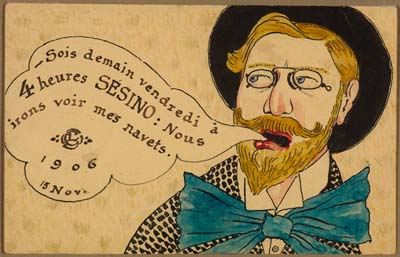 Sois demain vendredi à
4 heures SÉSINO: Nous
irons voir mes navets.
1906
15 Nov.